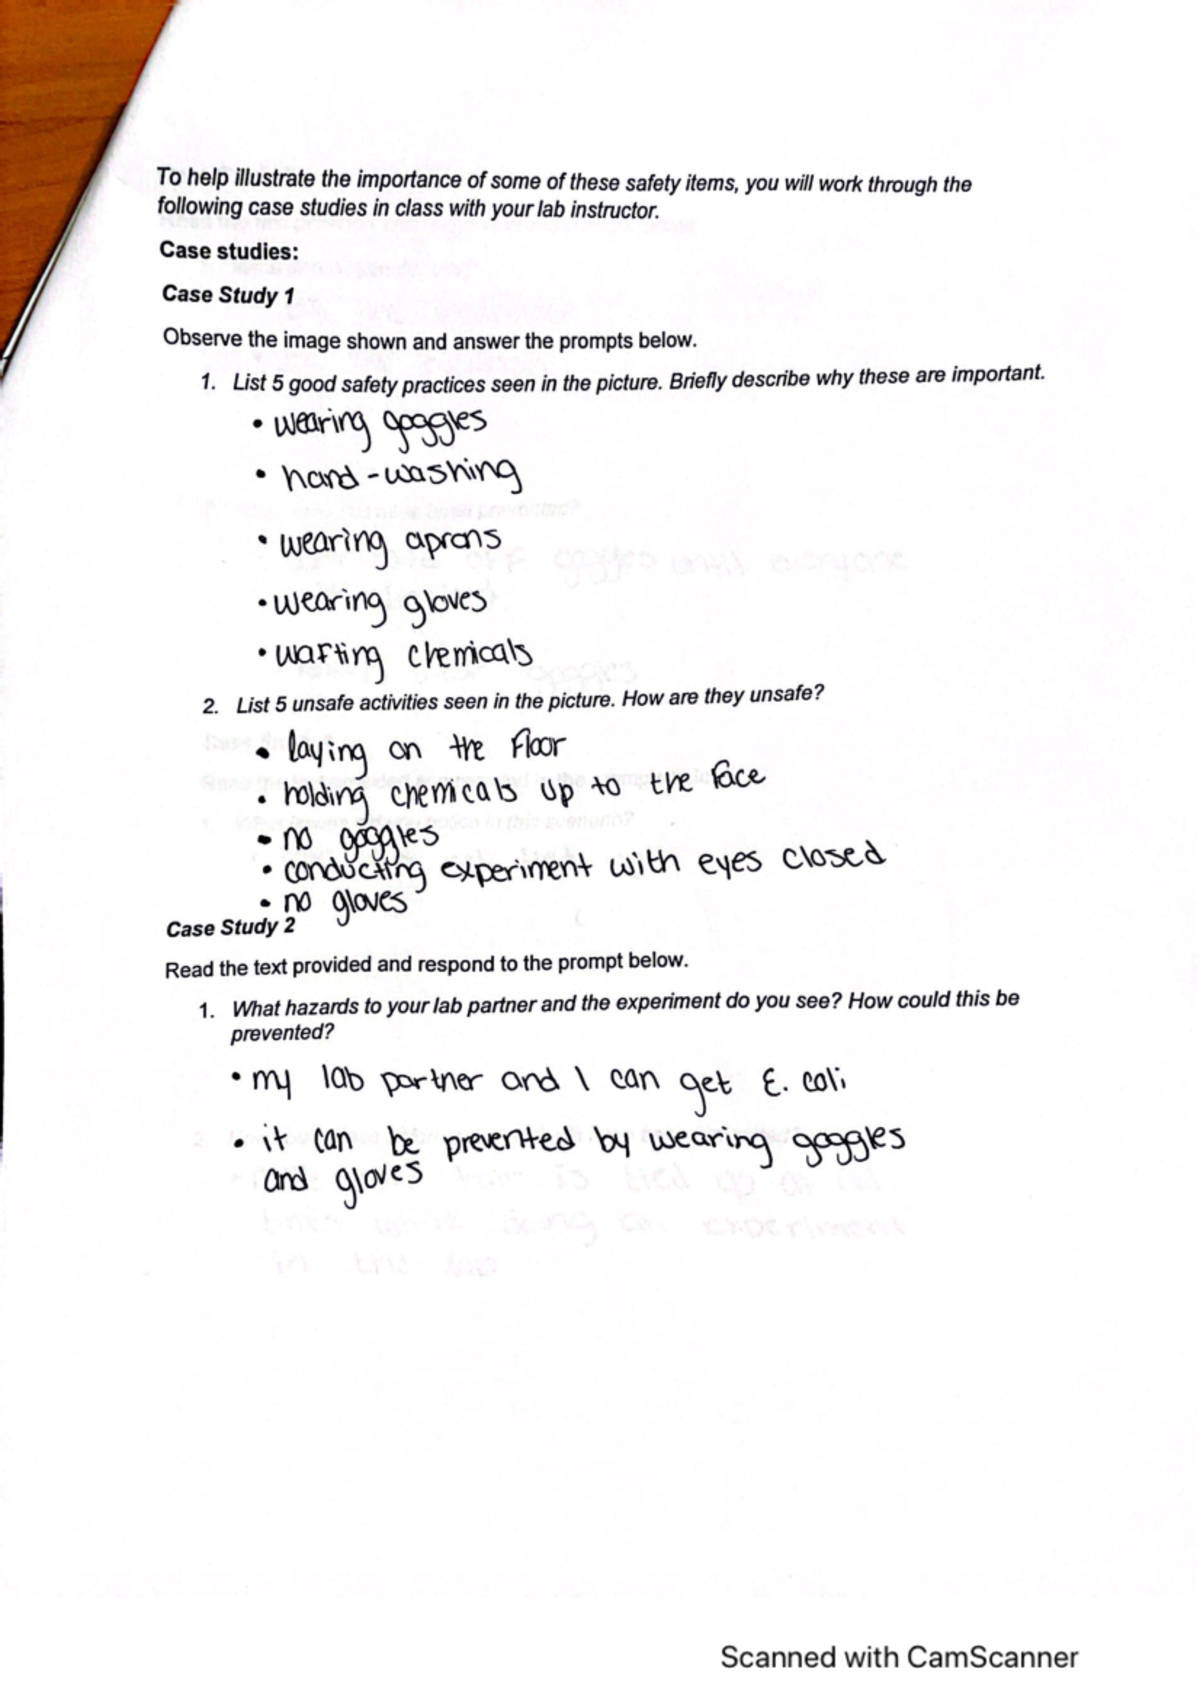 To help illustrate the importance of some of these safety items, you will work through the
following case studies in class with your lab instructor.
Case studies:
Case Study 1
Observe the image shown and answer the prompts below.
1. List 5 good safety practices seen in the picture. Briefly describe why these are important.
• wearing goggles
• hand-washing
• wearing aprons
• wearing gloves
• wafting chemicals
2. List 5 unsafe activities seen in the picture. How are they unsafe?
• laying on the floor
• holding chemicals up to the face
• no goggles
• conducting experiment with eyes closed
• no gloves
Case Study 2
Read the text provided and respond to the prompt below.
1. What hazards to your lab partner and the experiment do you see? How could this be
prevented?
• my lab partner and I can get E. coli
• it can be prevented by wearing goggles
and gloves
Scanned with CamScanner